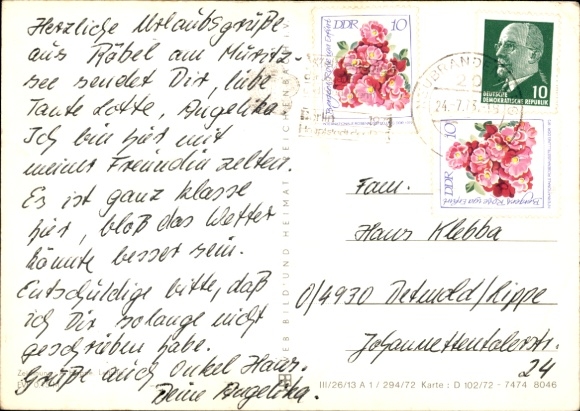 Herzliche Urlaubsgrüße
aus Röbel am Müritz-
see sendet Dir, liebe
Tante Lotte, Angelika.
Ich bin hier mit
meiner Freundin zelten.
Es ist ganz klasse
hier, bloß das Wetter
könnte besser sein.
Entschuldige bitte, daß
ich Dir solange nicht
geschrieben habe.
Grüße auch Onkel Hans.
Deine Angelika.
DDR 10
10
DEUTSCHE
DEMOKRATISCHE REPUBLIK
DDR 10
24.-7.73
Fam.
Hans Klebba
O/4930 Detmold/Lippe
Johannettentalerstr.
24
BILD UND HEIMAT REICHENBACH
III/26/13 A 1 / 294/72 Karte: D 102/72 - 7474 8046